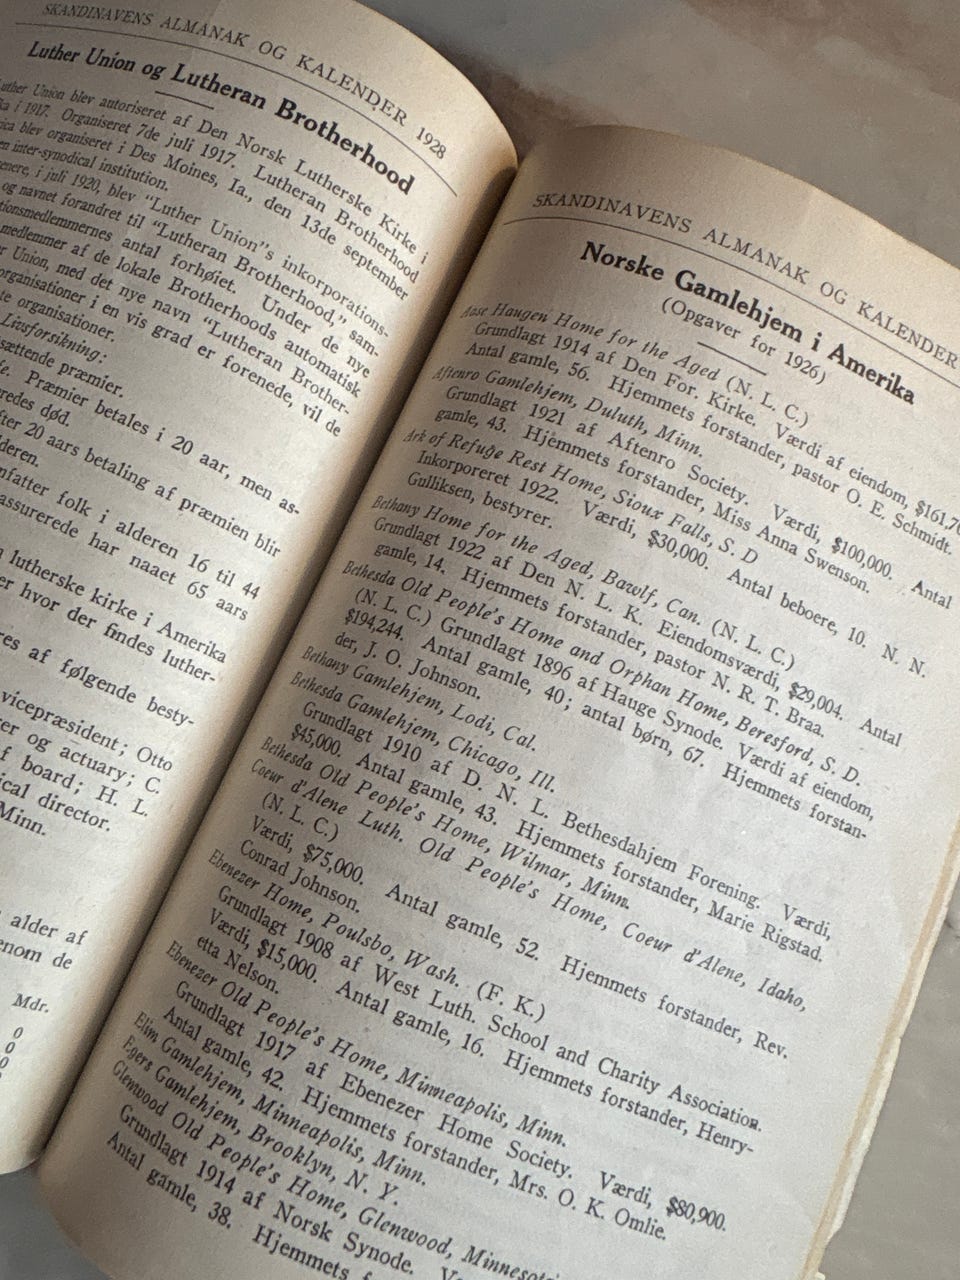 SKANDINAVENS ALMANAK OG KALENDER 1928
Luther Union og Lutheran Brotherhood
Luther Union blev autoriseret af Den Norsk Lutherske Kirke i
i 1917. Organiseret 7de juli 1917. Lutheran Brotherhood
blev organiseret i Des Moines, Ia., den 13de september
inter-synodical institution.
i juli 1920, blev "Luther Union"s inkorporations-
og navnet forandret til "Lutheran Brotherhood," sam-
antal forhøiet. Under de nye
medlemmer af de lokale Brotherhoods automatisk
Union, med det nye navn "Lutheran Brother-
organisationer i en vis grad er forenede, vil de
organisationer.
Livsforsikning:
præmier.
Præmier betales i 20 aar, men as-
død.
20 aars betaling af præmien blir
folk i alderen 16 til 44
assurerede har naaet 65 aars
lutherske kirke i Amerika
hvor der findes luther-
af følgende besty-
vicepræsident; Otto
og actuary; C.
board; H. L.
director.
Minn.
alder af
de
Mdr.
0
0
SKANDINAVENS ALMANAK OG KALENDER
Norske Gamlehjem i Amerika
(Opgaver for 1926)
Aase Haugen Home for the Aged (N. L. C.)
Grundlagt 1914 af Den For. Kirke. Værdi af eiendom,
Antal gamle, 56. Hjemmets forstander, pastor O. E. Schmidt.
Aftenro Gamlehjem, Duluth, Minn.
Grundlagt 1921 af Aftenro Society. Værdi, $100,000. Antal
gamle, 43. Hjemmets forstander, Miss Anna Swenson.
Ark of Refuge Rest Home, Sioux Falls, S. D
Inkorporeret 1922. Værdi, $30,000. Antal beboere, 10. N. N.
Gulliksen, bestyrer.
Bethany Home for the Aged, Bawlf, Can. (N. L. C.)
Grundlagt 1922 af Den N. L. K. Eiendomsværdi, $29,004. Antal
gamle, 14. Hjemmets forstander, pastor N. R. T. Braa.
Bethesda Old People's Home and Orphan Home, Beresford, S. D.
(N. L. C.) Grundlagt 1896 af Hauge Synode. Værdi af eiendom,
$194,244. Antal gamle, 40; antal børn, 67. Hjemmets forstan-
der, J. O. Johnson.
Bethany Gamlehjem, Lodi, Cal.
Bethesda Gamlehjem, Chicago, Ill.
Grundlagt 1910 af D. N. L. Bethesdahjem Forening. Værdi,
$45,000. Antal gamle, 43. Hjemmets forstander, Marie Rigstad.
Bethesda Old People's Home, Wilmar, Minn.
Coeur d'Alene Luth. Old People's Home, Coeur d'Alene, Idaho,
(N. L. C.)
Værdi, $75,000. Antal gamle, 52. Hjemmets forstander, Rev.
Conrad Johnson.
Ebenezer Home, Poulsbo, Wash. (F. K.)
Grundlagt 1908 af West Luth. School and Charity Association.
Værdi, $15,000. Antal gamle, 16. Hjemmets forstander, Henry-
etta Nelson.
Ebenezer Old People's Home, Minneapolis, Minn.
Grundlagt 1917 af Ebenezer Home Society. Værdi, $80,900.
Antal gamle, 42. Hjemmets forstander, Mrs. O. K. Omlie.
Elim Gamlehjem, Minneapolis, Minn.
Egers Gamlehjem, Brooklyn, N. Y.
Glenwood Old People's Home, Glenwood, Minnesota
Grundlagt 1914 af Norsk Synode.
Antal gamle, 38. Hjemmets